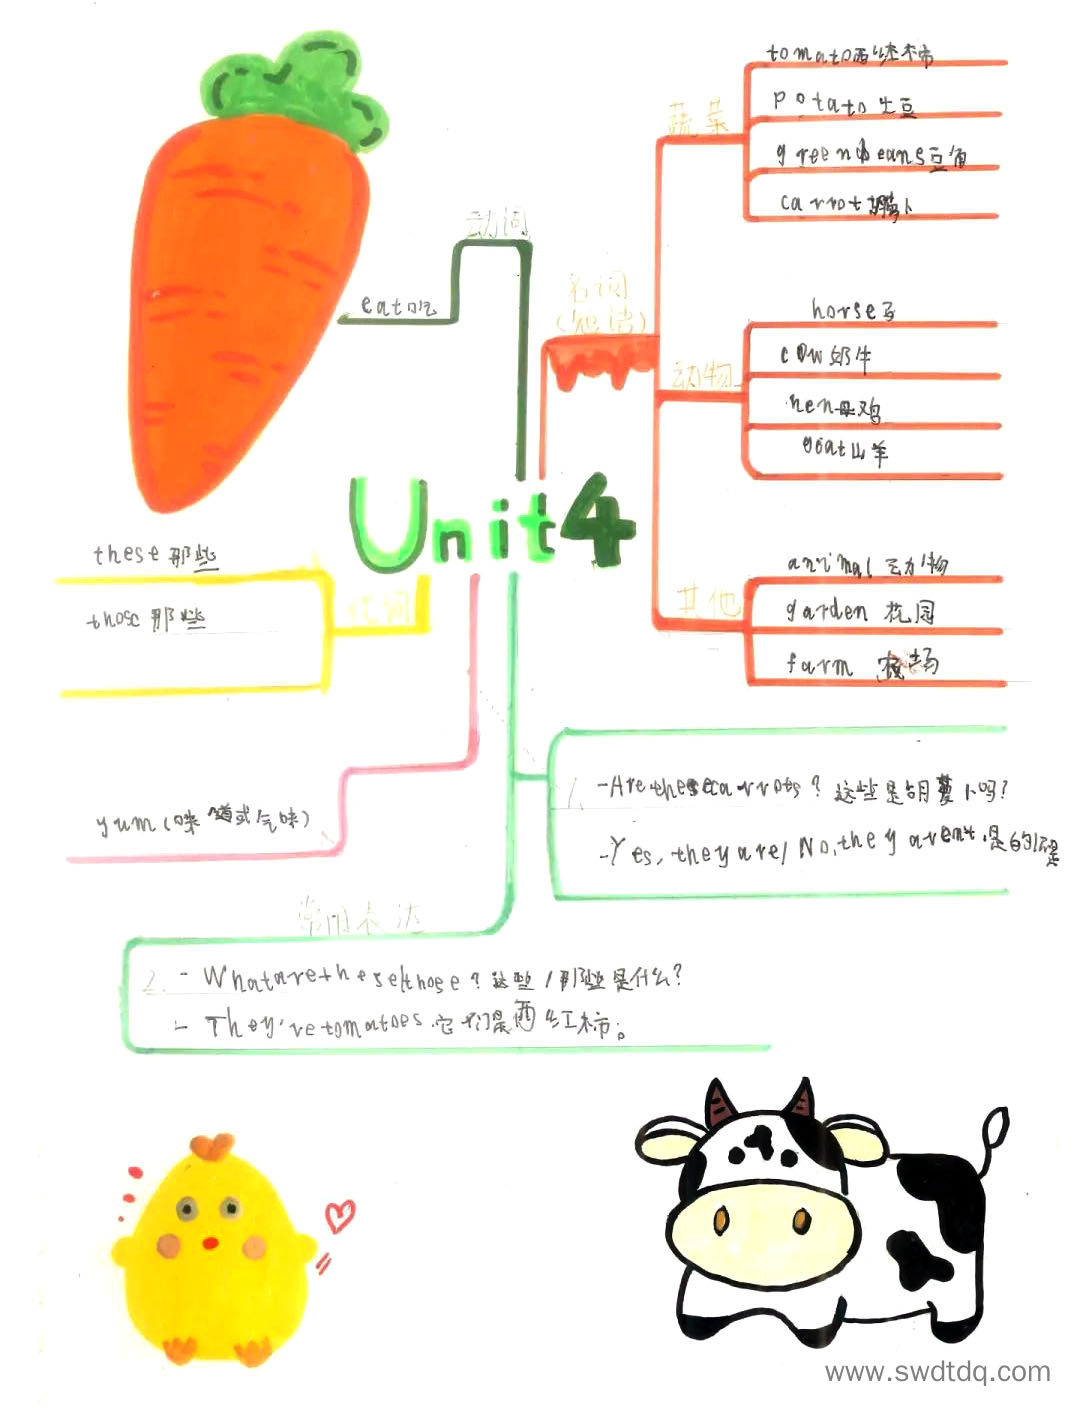 蔬菜
tomato西红柿
potato 土豆
green beans豆角
carrot胡萝卜
名词
动物
horse马
cow奶牛
hen母鸡
goat山羊
其他
animal 动物
garden 花园
farm 农场
动词
eat吃
Unit4
代词
these 那些
those 那些
yum(味道或气味)
1.
-Are these carrots? 这些是胡萝卜吗?
-Yes, they are/ No, they arent.是的/不是
常用表达
2. - What are these/those? 这些/那些是什么?
- They're tomatoes.它们是西红柿。
www.swdtdq.com